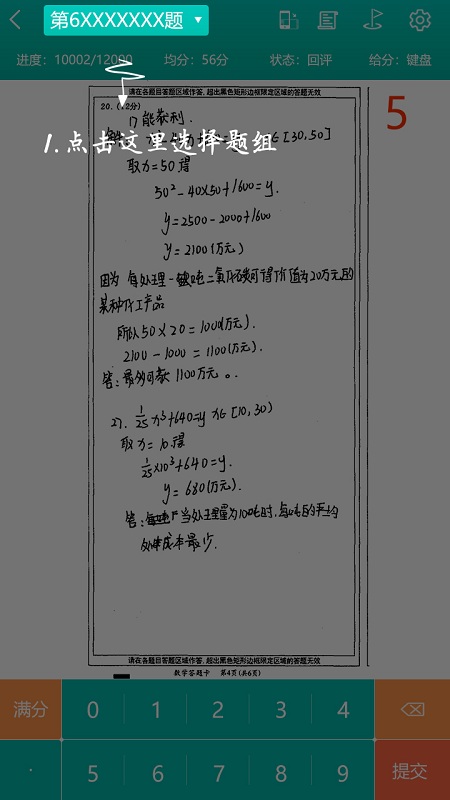 第6XXXXXXX题
进度：10002/12000 均分：56分 状态：回评 给分：键盘
请在各题目答题区域作答，超出黑色矩形边框限定区域的答题无效
20.（12分）
5
1.点击这里选择题组
取x=50得
50²-40×50+1600=y.
y=2500-2000+1600
y=2100(万元)
因为 每处理一吨二氧化碳可得价值为20万元的
某种化工产品
所以50×20=1000(万元).
2100-1000=1100(万元).
答：最多可获1100万元。
27. 1/25 x³+640=y x∈[10,30)
取x=10得
1/25×10³+640=y.
y=680(万元).
答：当处理量为10吨时,每吨的平均
处理成本最少.
请在各题目答题区域作答，超出黑色矩形边框限定区域的答题无效
数学答题卡 第4页(共6页)
满分 0 1 2 3 4
· 5 6 7 8 9 提交